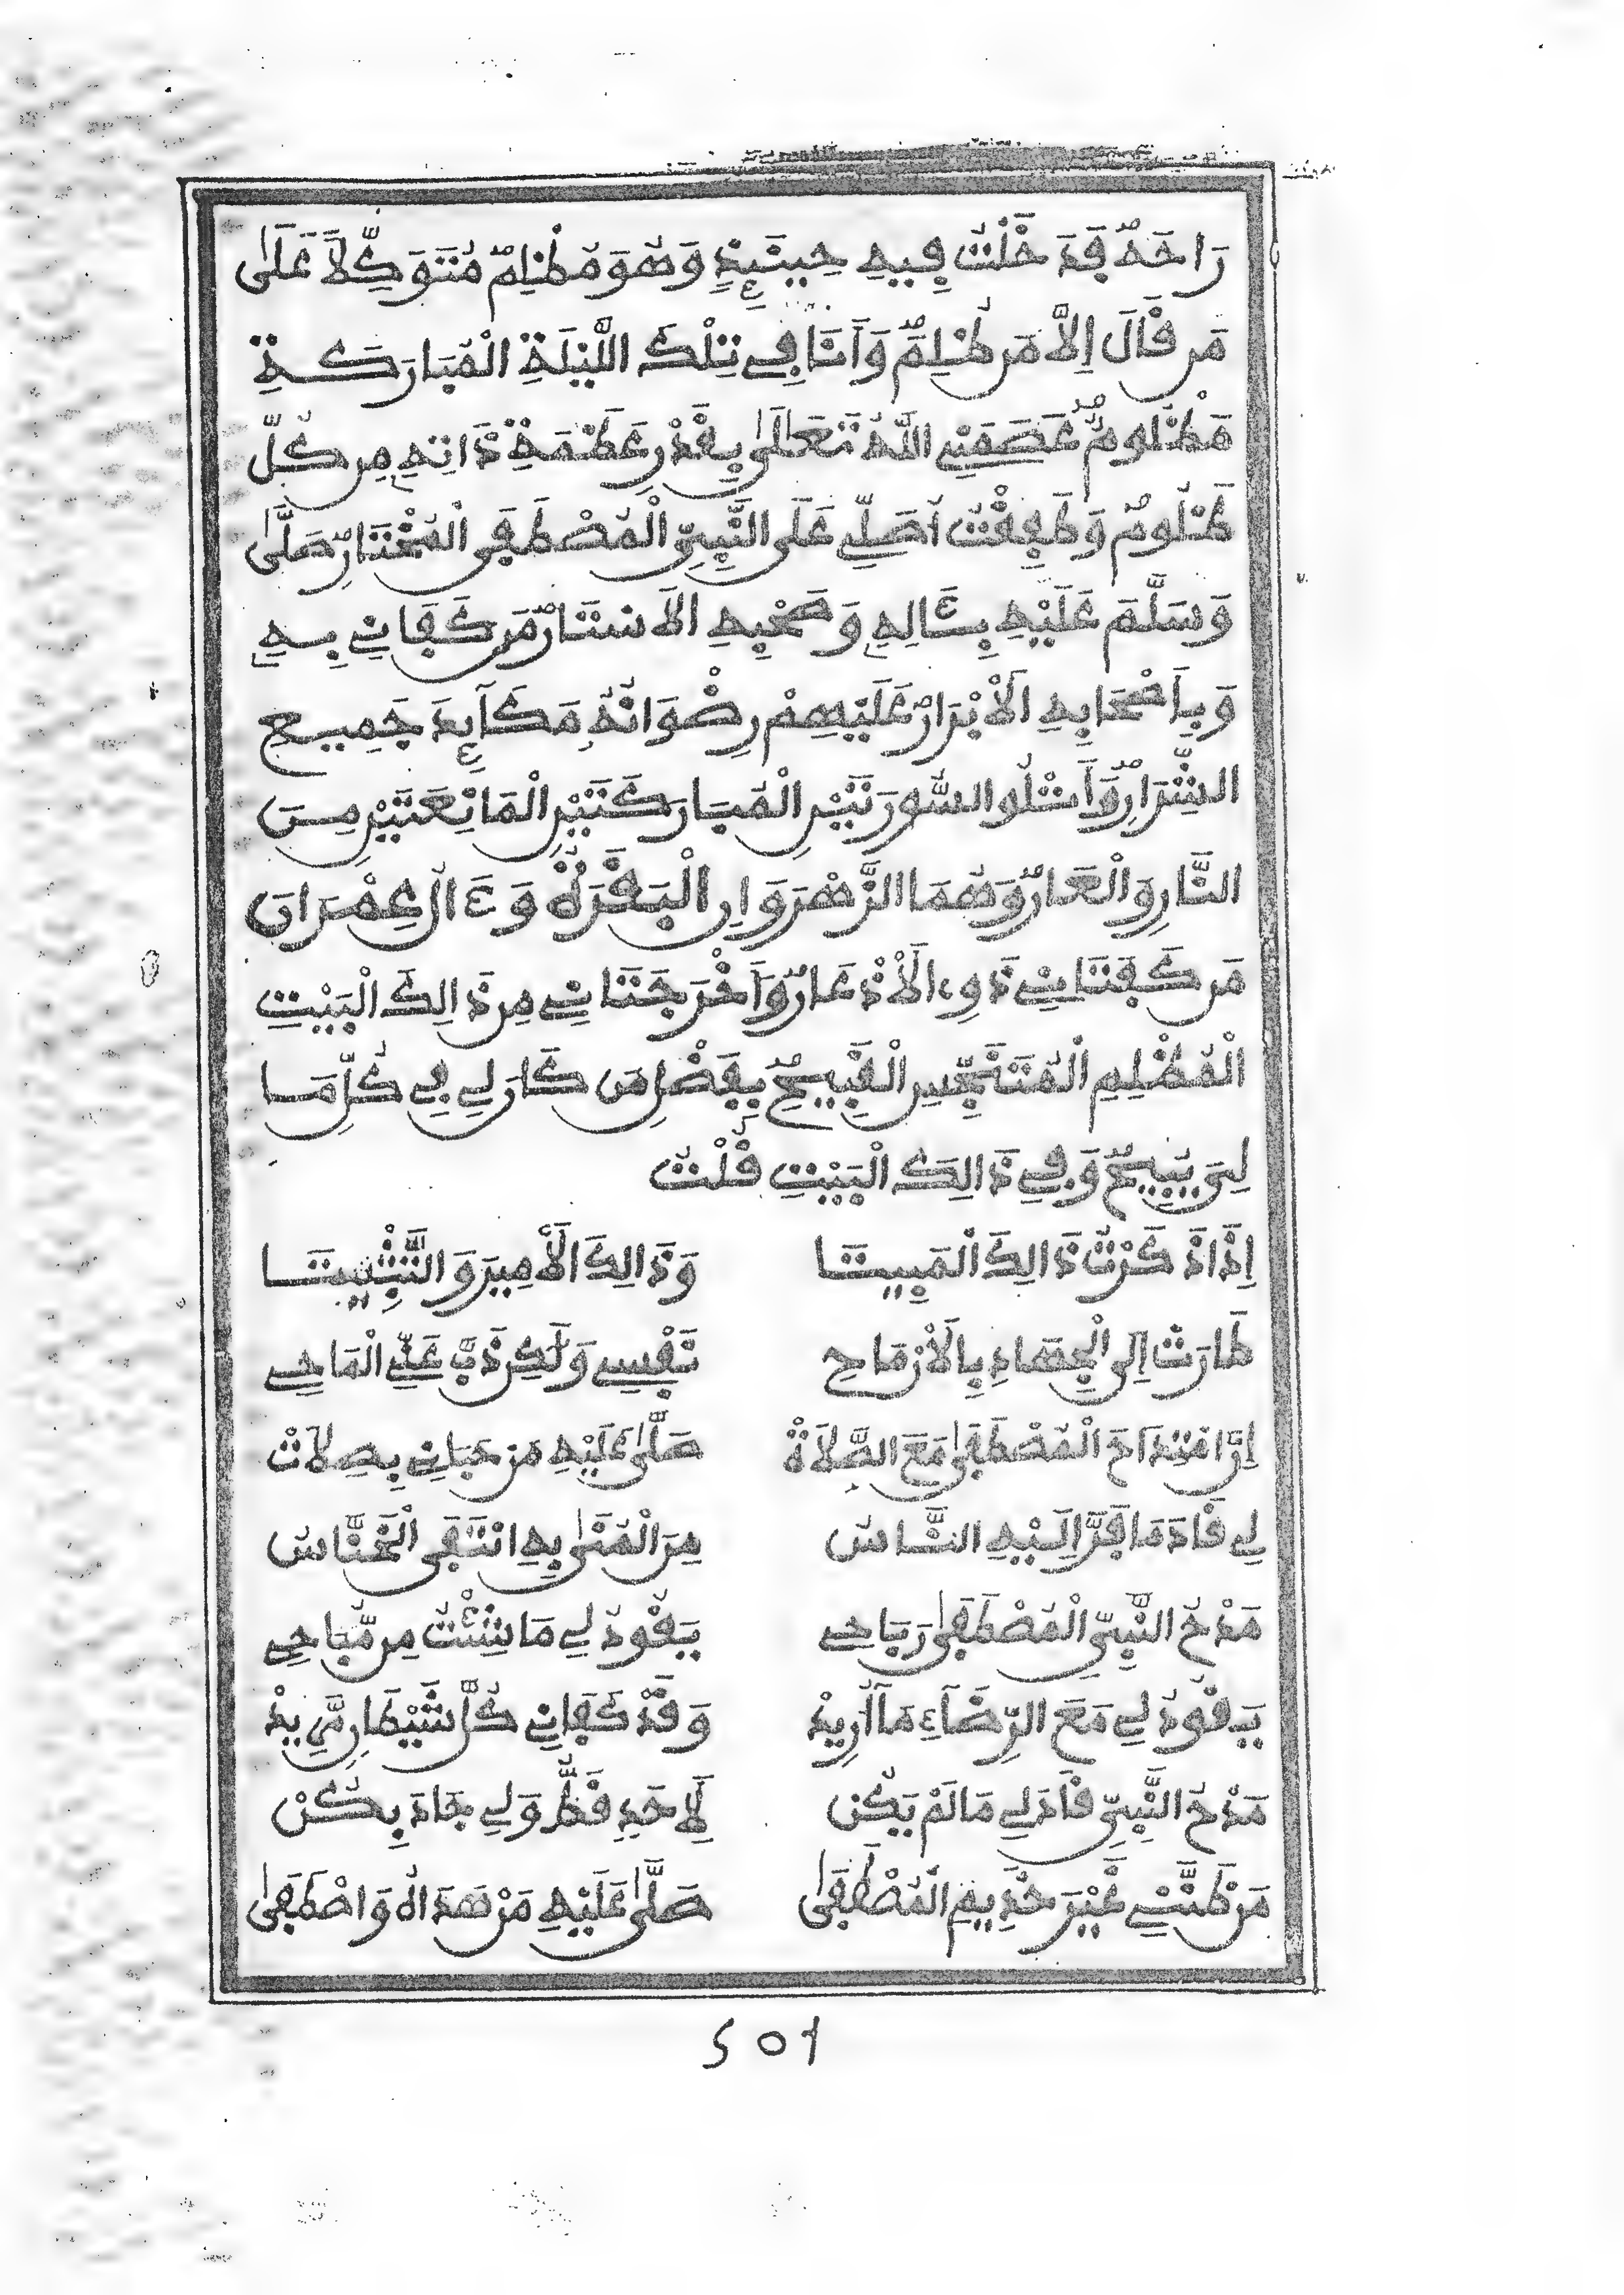 رَاحَةٌ فَدَخَلْتُ فِيهِ حِينَئِذٍ وَهُوَ مُظْلِمٌ مُتَوَكِّلاً عَلَى
مَن قَالَ إِلاَّ مَن ظُلِمَ وَأَنَا فِي تِلْكَ اللَّيْلَةِ الْمُبَارَكَةِ
مَظْلُومٌ عَصَمَنِي اللَّهُ تَعَالَى بِقَدْرِ عَظَمَةِ ذَاتِهِ مِن كُلِّ
ظَلُومٍ وَطَفِقْتُ أُصَلِّي عَلَى النَّبِيِّ الْمُصْطَفَى الْمُخْتَارِ صَلَّى
وَسَلَّمَ عَلَيْهِ بِئَالِهِ وَصَحْبِهِ الأَسْتَارُ مَن كَفَانِي بِهِ
وَبِأَصْحَابِهِ الأَبْرَارِ عَلَيْهِمْ رِضْوَانُهُ مَكَآئِدَ جَمِيعِ
الشِّرَارِ وَأَتْلُو السُّورَتَيْنِ الْمُبَارَكَتَيْنِ الْمَانِعَتَيْنِ مِنَ
النَّارِ وَالْعَارِ وَهُمَا الزَّهْرَوَانِ الْبَقَرَةُ وَءَالُ عِمْرَانَ
مَن كَفَتَانِي ذَوِي الأَذْعَارِ وَأَخْرَجَتَانِي مِن ذَالِكَ الْبَيْتِ
الْمُظْلِمِ الْمُتَنَجِّسِ الْقَبِيحِ بِفَضْلِ مَن كَانَ لِي فِي كُلِّ مَا
لِيَ يُبِيحُ وَفِي ذَالِكَ الْبَيْتِ قُلْتُ
إِذَا ذَكَرْتُ ذَالِكَ الْمَبِيتَا وَذَالِكَ الأَمِيرَ وَالتَّثْبِيتَا
طَارَتْ إِلَى الْجِهَادِ بِالأَرْمَاحِ نَفْسِي وَلَكِن ذَبَّ عَنِّي الْمَاحِي
إِنَّ امْتِدَاحَ الْمُصْطَفَى مَعَ الصَّلاَةْ صَلَّى عَلَيْهِ مَنْ حَبَانِي بِصِلاَتْ
لِي قَادَ مَا فَرَّ إِلَيْهِ النَّاسُ مِنَ الْمُنَى بِهِ انْتَفَى الْخَنَّاسُ
مَدْحُ النَّبِيِّ الْمُصْطَفَى رَبَاحِي يَقُودُ لِي مَا شِئْتُ مِن مُّبَاحِي
يَقُودُ لِي مَعَ الرِّضَاءِ مَا أُرِيدْ وَقَدْ كَفَانِي كُلَّ شَيْطَانٍ مَّرِيدْ
مَدْحُ النَّبِيِّ قَادَ لِي مَا لَمْ يَكُن لأَحَدٍ قَطُّ وَلِي جَادَ بِكُنْ
مَن ظَنَّنِي غَيْرَ خَدِيمِ الْمُصْطَفَى صَلَّى عَلَيْهِ مَنْ هَدَاهُ وَاصْطَفَى
501